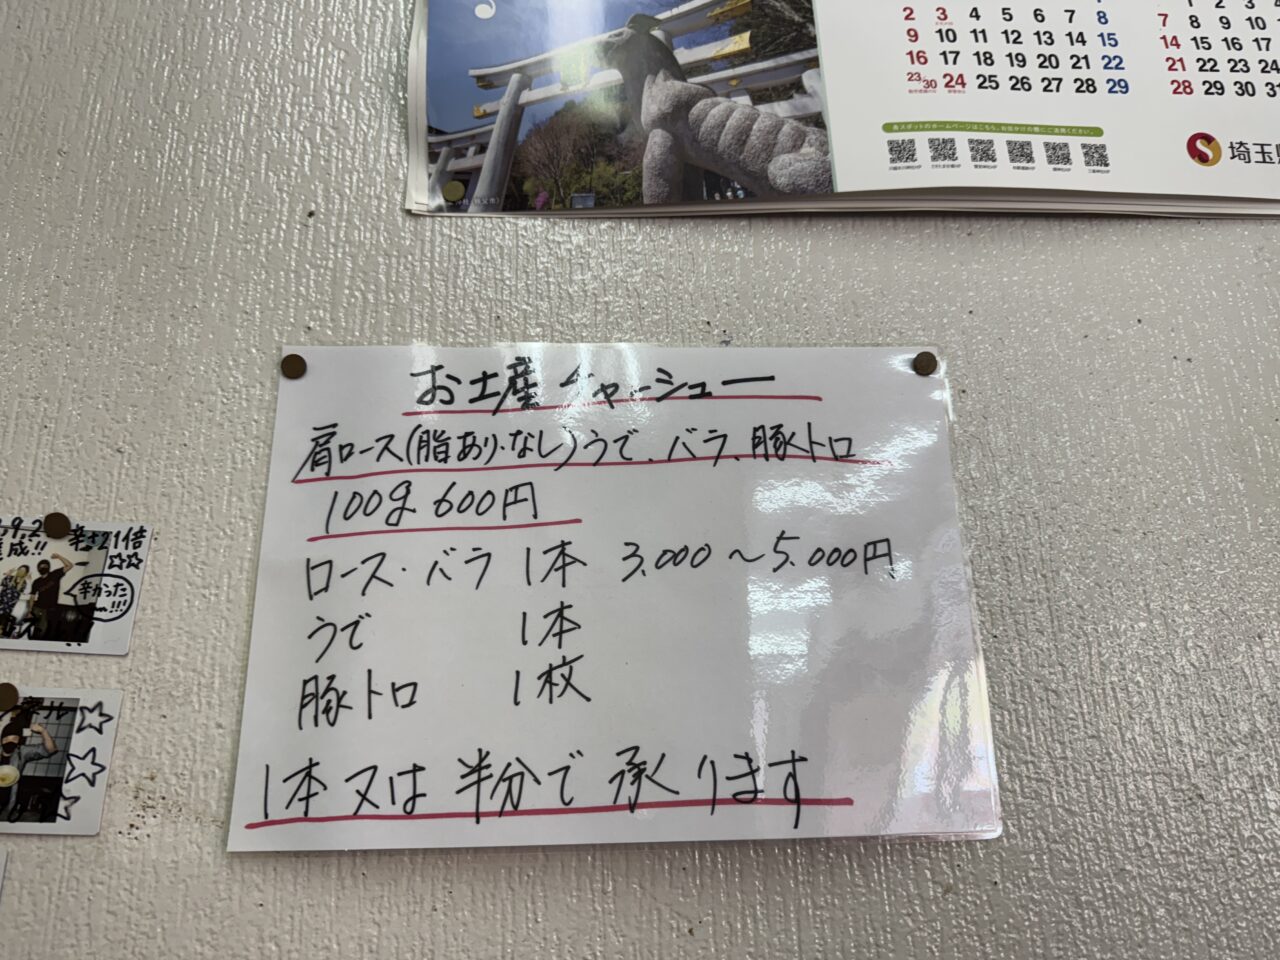 2 3 4 5 6 7 8
9 10 11 12 13 14 15
16 17 18 19 20 21 22
23/30 24 25 26 27 28 29
7 8 9 10
14 15 16 17
21 22 23 24
28 29 30 31
各スポットのホームページはこちら。お出かけの際にご活用ください。
埼玉県
お土産チャーシュー
肩ロース(脂あり・なし)うで、バラ、豚トロ
100g 600円
ロース・バラ 1本 3,000～5,000円
うで 1本
豚トロ 1枚
1本又は半分で承ります
辛さ21倍
成!!
☆☆
辛かった